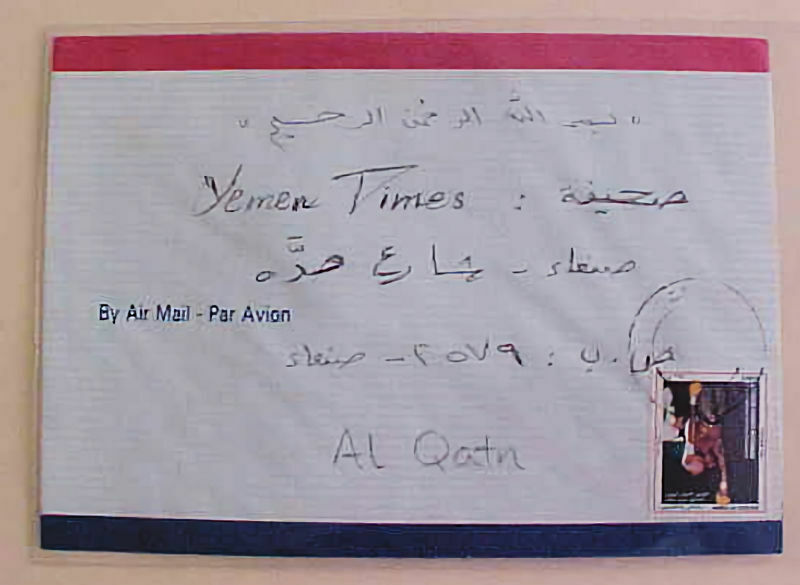 " بسم الله الرحمن الرحيم "
صحيفة : Yemen Times
صنعاء - شارع حدّه
By Air Mail - Par Avion
ص.ب : ٢٥٧٩ - صنعاء
Al Qatn